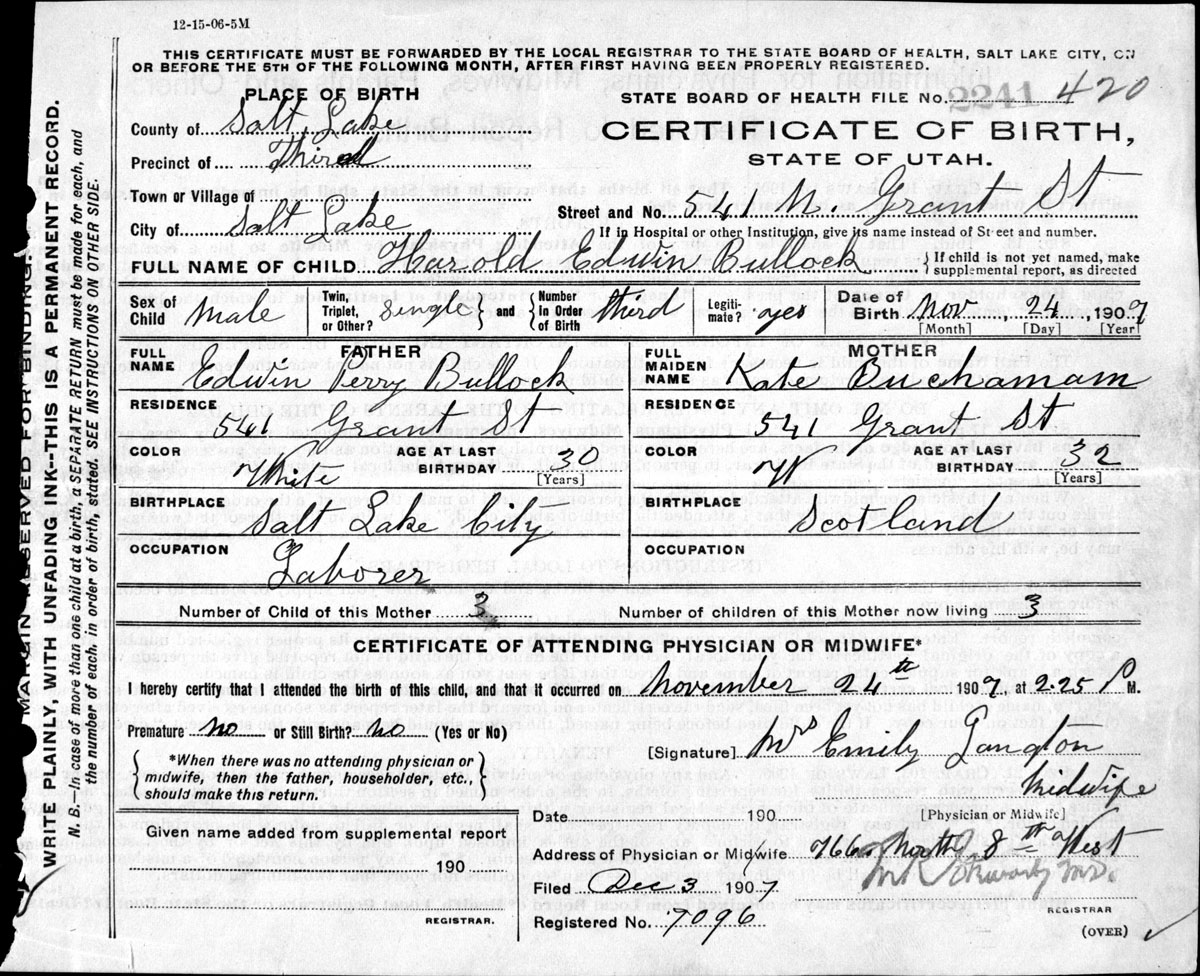 12-15-06-5M
THIS CERTIFICATE MUST BE FORWARDED BY THE LOCAL REGISTRAR TO THE STATE BOARD OF HEALTH, SALT LAKE CITY, ON
OR BEFORE THE 5TH OF THE FOLLOWING MONTH, AFTER FIRST HAVING BEEN PROPERLY REGISTERED.
PLACE OF BIRTH
STATE BOARD OF HEALTH FILE No. 2241 420
County of Salt Lake
CERTIFICATE OF BIRTH,
Precinct of Third
STATE OF UTAH.
Town or Village of
Street and No. 541 N. Grant St
City of Salt Lake
If in Hospital or other Institution, give its name instead of Street and number.
FULL NAME OF CHILD Harold Edwin Bullock { If child is not yet named, make supplemental report, as directed
Sex of Child Male Twin, Triplet, or Other? Single } and { Number In Order of Birth third Legiti- mate? yes Date of Birth Nov 24, 1907
[Month] [Day] [Year]
FATHER
FULL NAME Edwin Perry Bullock
RESIDENCE 541 Grant St
COLOR White AGE AT LAST BIRTHDAY 30 [Years]
BIRTHPLACE Salt Lake City
OCCUPATION Laborer
MOTHER
FULL MAIDEN NAME Kate Buchanan
RESIDENCE 541 Grant St
COLOR W AGE AT LAST BIRTHDAY 32 [Years]
BIRTHPLACE Scotland
OCCUPATION
Number of Child of this Mother 3 Number of children of this Mother now living 3
CERTIFICATE OF ATTENDING PHYSICIAN OR MIDWIFE*
I hereby certify that I attended the birth of this child, and that it occurred on November 24th 1907, at 2.25 P M.
Premature no or Still Birth? no (Yes or No)
[Signature] Mrs Emily Langton
Midwife
[Physician or Midwife]
{ *When there was no attending physician or
midwife, then the father, householder, etc.,
should make this return. }
Date 190
Given name added from supplemental report
190
REGISTRAR.
Address of Physician or Midwife 766 North 8th West
Filed Dec 3 1907
Registered No. 7096
REGISTRAR
(OVER)
MARGIN RESERVED FOR BINDING.
WRITE PLAINLY, WITH UNFADING INK--THIS IS A PERMANENT RECORD.
N. B.--In case of more than one child at a birth, a SEPARATE RETURN must be made for each, and
the number of each, in order of birth, stated. SEE INSTRUCTIONS ON OTHER SIDE.